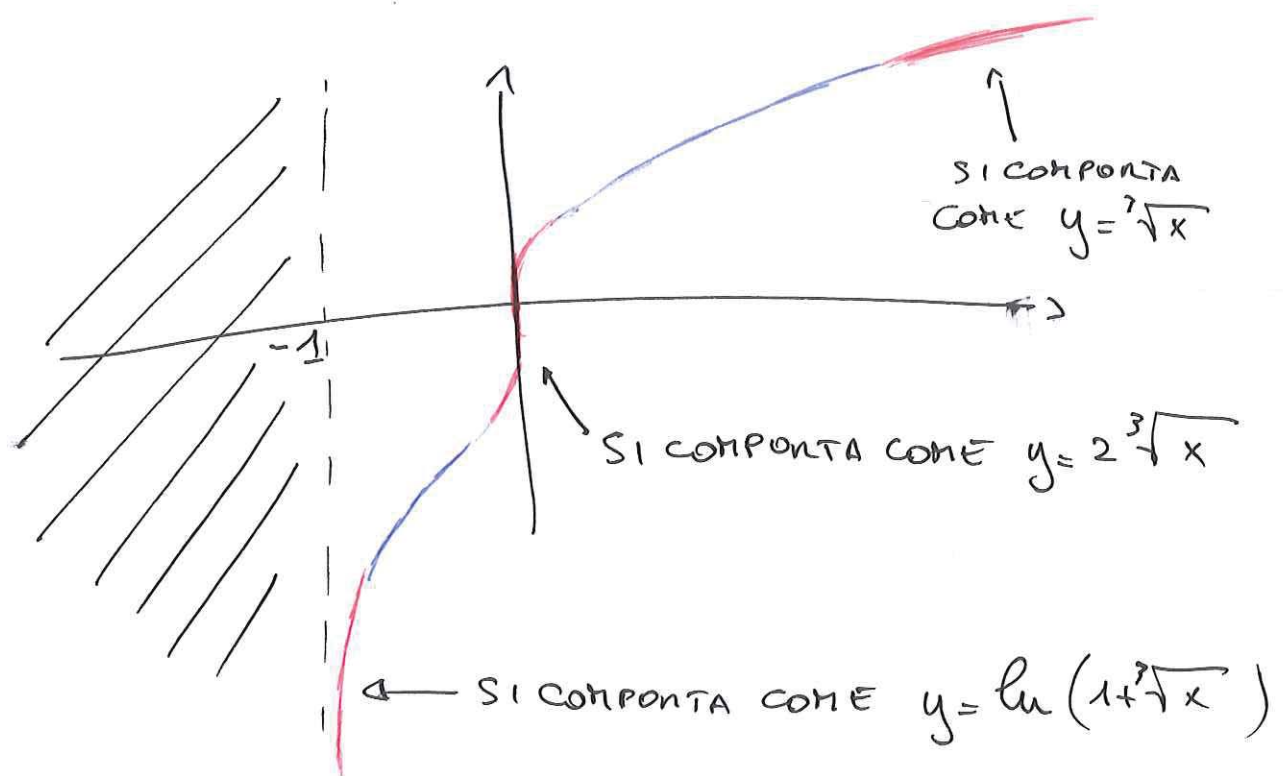 SI COMPORTA
COME y = ³√x
-1
SI COMPORTA COME y = 2 ³√x
SI COMPORTA COME y = ln (1+³√x)